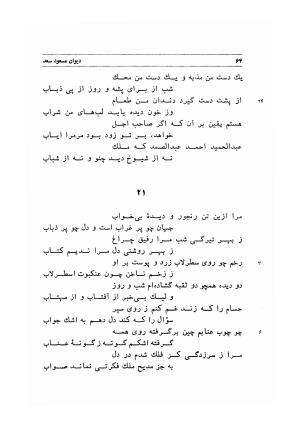 ۶۴ دیوان مسعود سعد
یك دست من مذبه و یك دست من محك
شب از برای پشه و روز از پی ذباب
۲۴ از پشت دست گیرد دندان من طعام
وز خون دیده یابد لب‌های من شراب
هستم یقین بر آن که اگر صاحب اجل
خواهد، بر تو زود بود مرمرا ایاب
عبدالحمید احمد عبدالصمد که ملك
نه از شیوخ دید چنو و نه از شباب
۲۱
مرا ازین تن رنجور و دیدهٔ بی‌خواب
جهان چو پر غراب است و دل چو پر ذباب
ز بهر تیرگی شب مرا رفیق چراغ
ز بهر روشنی دل مرا ندیم کتاب
۳ رخم چو روی سطرلاب زرد و پوست بر او
ز زخم ناخن چون عنکبوت اسطرلاب
دو دیده همچو دو ثقبه گشاده‌ام شب و روز
و لیك بی‌خبر از آفتاب و از مهتاب
حسام را که زند خم کنم ز روی سپر
سؤال را که کند دل دهم به اشك جواب
۶ چو چوب عنابم چین برگرفته روی همه
گرفته اشکم گونه ز گونهٔ عناب
مرا ز سرزدگی کز فلك شدم در دل
به جز مدیح ملك فکرتی نماند صواب